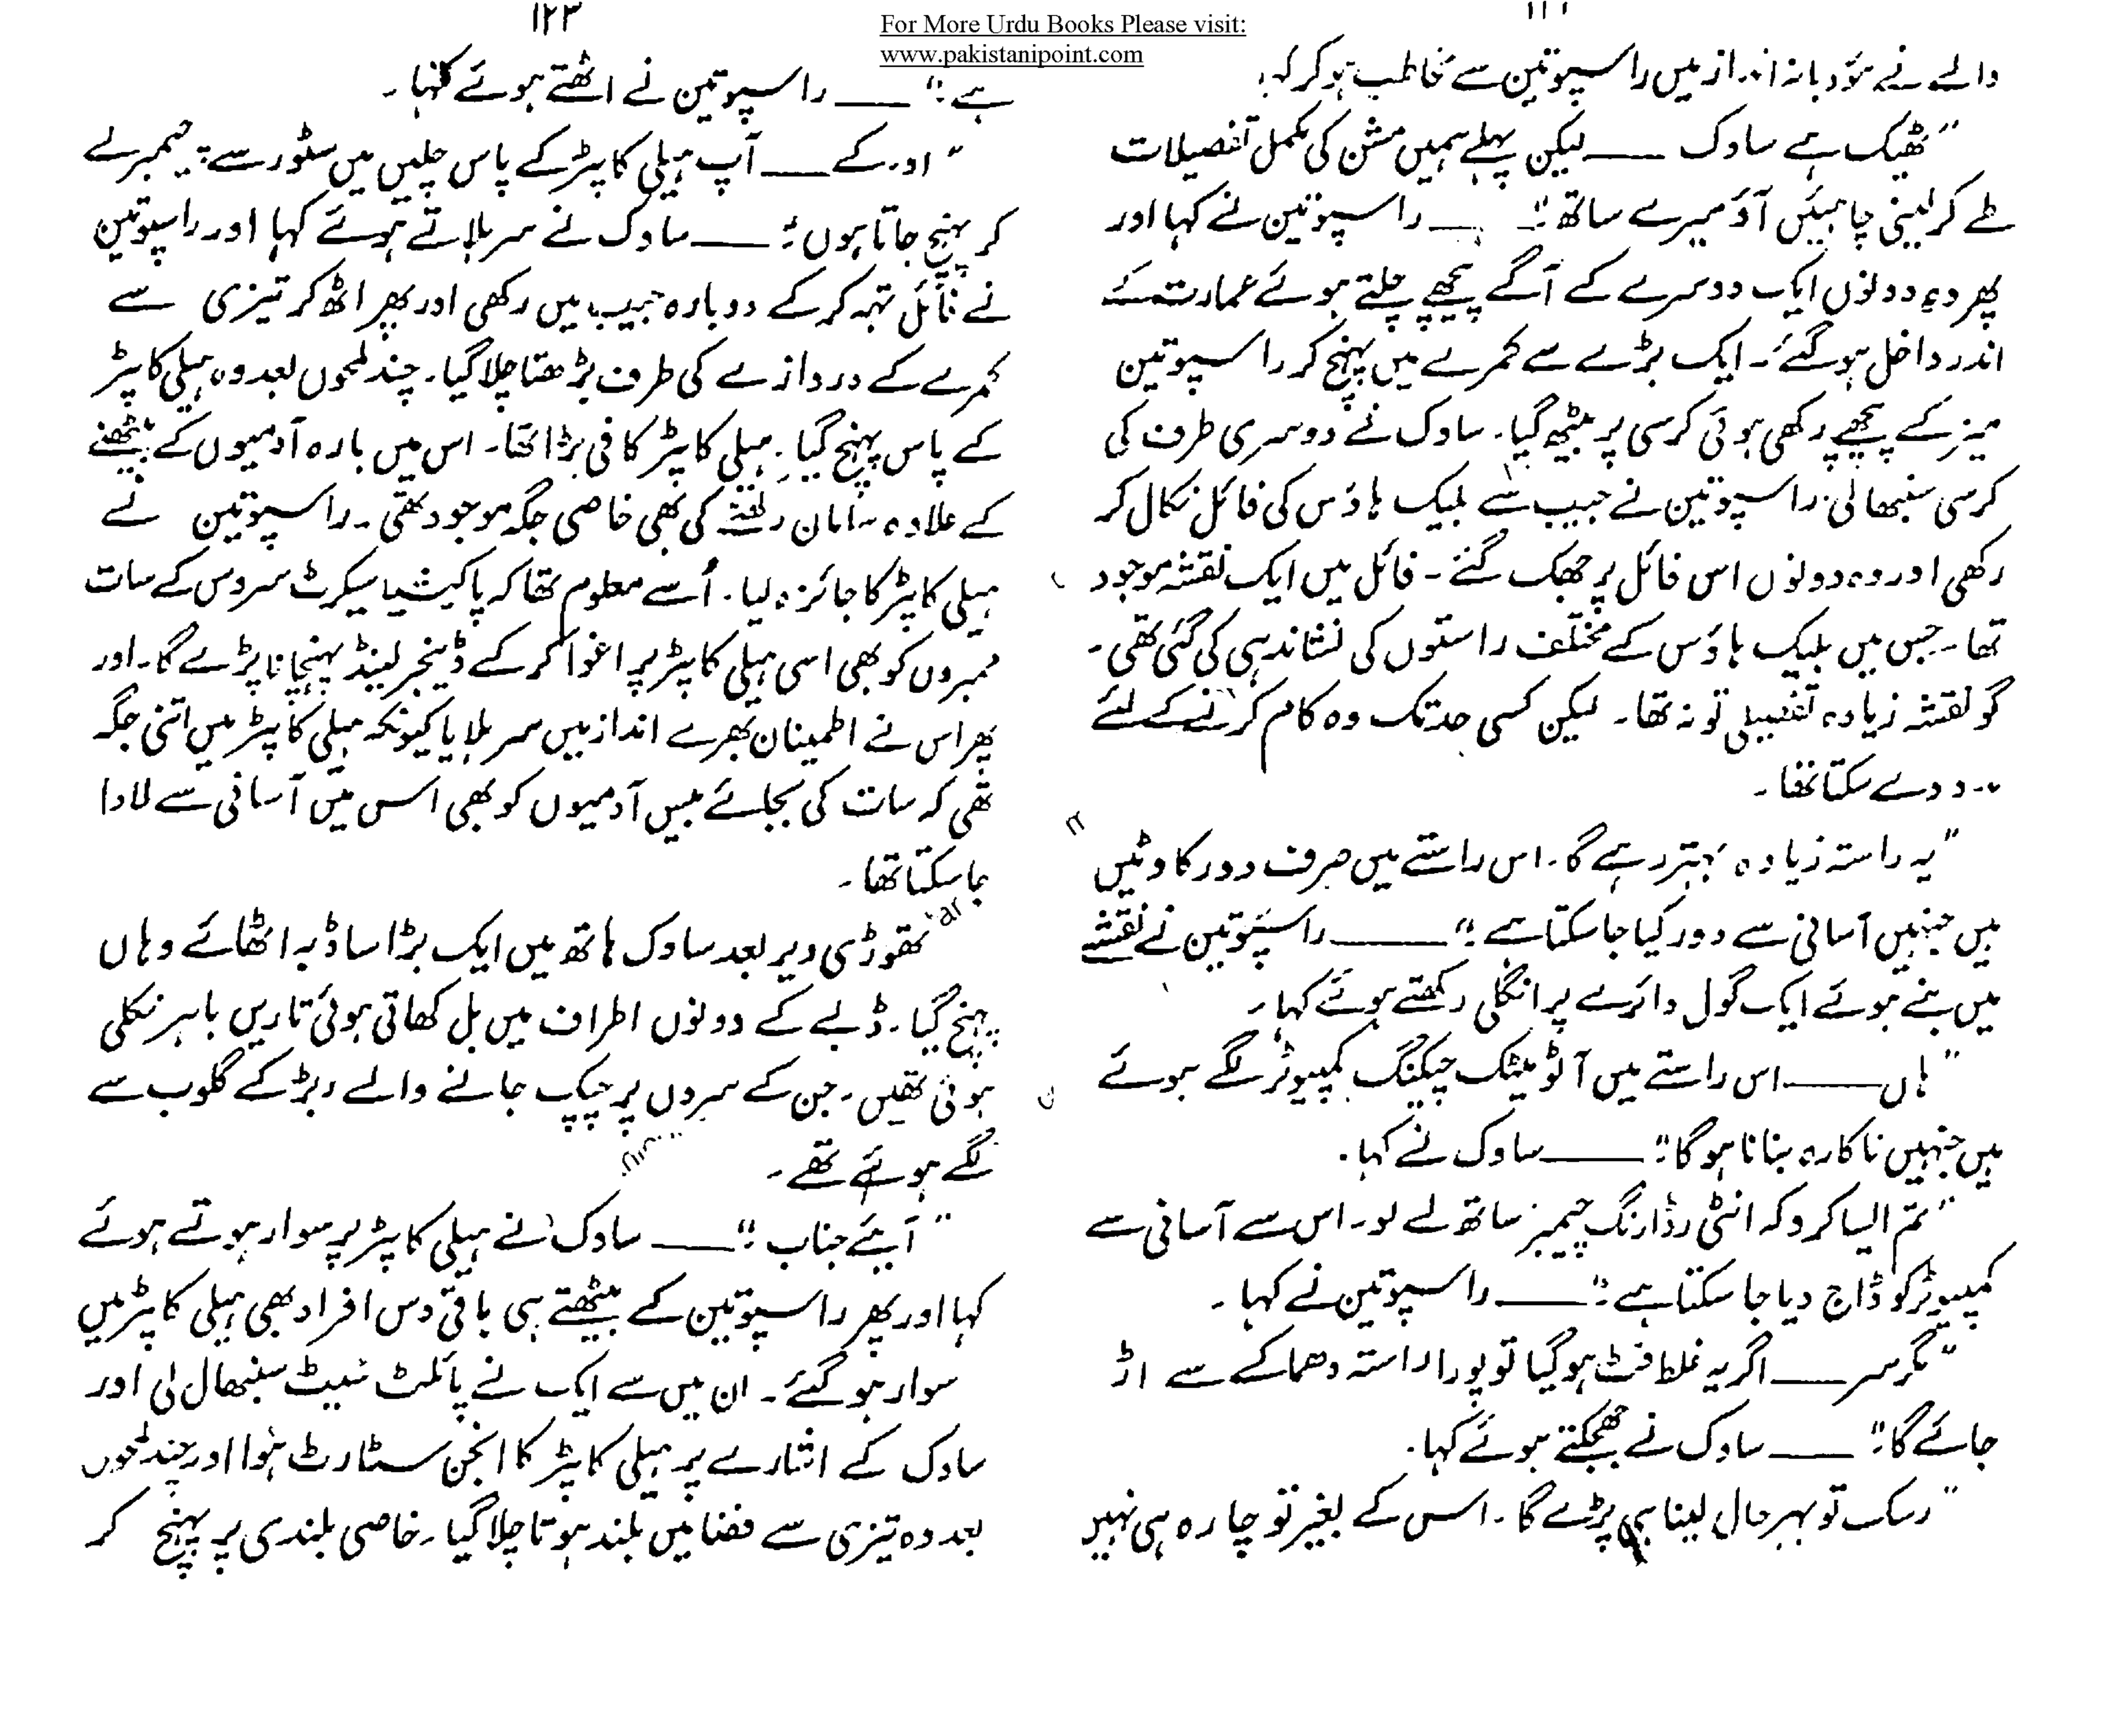 For More Urdu Books Please visit:
www.pakistanipoint.com
والے نے مؤدبانہ انداز میں راسپوتین سے مخاطب ہو کر کہا
"ٹھیک ہے ساوک ____ لیکن پہلے ہمیں مشن کی مکمل تفصیلات
طے کر لینی چاہیئں آؤ میرے ساتھ"۔ ____ راسپوتین نے کہا اور
پھر وہ دونوں ایک دوسرے کے آگے پیچھے چلتے ہوئے عمارت کے
اندر داخل ہو گئے۔ ایک بڑے سے کمرے میں پہنچ کر راسپوتین
میز کے پیچھے رکھی ہوئی کرسی پر بیٹھ گیا۔ ساوک نے دوسری طرف کی
کرسی سنبھالی۔ راسپوتین نے جیب سے بلیک ہاؤس کی فائل نکال کر
رکھی اور وہ دونوں اس فائل پر جھک گئے۔ فائل میں ایک نقشہ موجود
تھا۔ جس میں بلیک ہاؤس کے مختلف راستوں کی نشاندہی کی گئی تھی۔
گو نقشہ زیادہ تفصیلی تو نہ تھا۔ لیکن کسی حد تک وہ کام کرنے کے لئے
مدد دے سکتا تھا۔
"یہ راستہ زیادہ بہتر رہے گا۔ اس راستے میں صرف دو رکاوٹیں
ہیں جنہیں آسانی سے دور کیا جا سکتا ہے"۔ ____ راسپوتین نے نقشے
میں بنے ہوئے ایک گول دائرے پر انگلی رکھتے ہوئے کہا۔
"ہاں ____ اس راستے میں آٹومیٹک چیکنگ کمپیوٹر لگے ہوئے
ہیں جنہیں ناکارہ بنانا ہو گا"۔ ____ ساوک نے کہا۔
"تم ایسا کرو کہ انٹی رڈارنگ چیمبرز ساتھ لے لو۔ اس سے آسانی سے
کمپیوٹر کو ڈاج دیا جا سکتا ہے"۔ ____ راسپوتین نے کہا۔
"مگر سر ____ اگر یہ غلط فٹ ہو گیا تو پورا راستہ دھماکے سے اڑ
جائے گا"۔ ____ ساوک نے جھجکتے ہوئے کہا۔
"رسک تو بہرحال لینا ہی پڑے گا۔ اس کے بغیر تو چارہ ہی نہیں
۱۲۳
ہے"۔ ____ راسپوتین نے اٹھتے ہوئے کہا۔
"او۔ کے ____ آپ ہیلی کاپٹر کے پاس چلیں میں سٹور سے چیمبر لے
کر پہنچ جاتا ہوں"۔ ____ ساوک نے سر ہلاتے ہوئے کہا اور راسپوتین
نے فائل تہہ کر کے دوبارہ جیب میں رکھی اور پھر اٹھ کر تیزی سے
کمرے کے دروازے کی طرف بڑھتا چلا گیا۔ چند لمحوں بعد وہ ہیلی کاپٹر
کے پاس پہنچ گیا۔ ہیلی کاپٹر کافی بڑا تھا۔ اس میں بارہ آدمیوں کے بیٹھنے
کے علاوہ سامان رکھنے کی بھی خاصی جگہ موجود تھی۔ راسپوتین نے
ہیلی کاپٹر کا جائزہ لیا۔ اُسے معلوم تھا کہ پاکیشیا سیکرٹ سروس کے سات
ممبروں کو بھی اسی ہیلی کاپٹر پر اغوا کر کے ڈینجر لینڈ پہنچانا پڑے گا۔ اور
پھر اس نے اطمینان بھرے انداز میں سر ہلایا کیونکہ ہیلی کاپٹر میں اتنی جگہ
تھی کہ سات کی بجائے بیس آدمیوں کو بھی اس میں آسانی سے لادا
جا سکتا تھا۔
تھوڑی دیر بعد ساوک ہاتھ میں ایک بڑا سا ڈبہ اٹھائے وہاں
پہنچ گیا۔ ڈبے کے دونوں اطراف میں بل کھاتی ہوئی تاریں باہر نکلی
ہوئی تھیں۔ جن کے سروں پر چپک جانے والے ربڑ کے گلوب سے
لگے ہوئے تھے۔
"آیئے جناب"۔ ____ ساوک نے ہیلی کاپٹر پر سوار ہوتے ہوئے
کہا اور پھر راسپوتین کے بیٹھتے ہی باقی دس افراد بھی ہیلی کاپٹر میں
سوار ہو گئے۔ ان میں سے ایک نے پائلٹ سیٹ سنبھال لی اور
ساوک کے اشارے پر ہیلی کاپٹر کا انجن سٹارٹ ہوا اور چند لمحوں
بعد وہ تیزی سے فضا میں بلند ہوتا چلا گیا۔ خاصی بلندی پر پہنچ کر